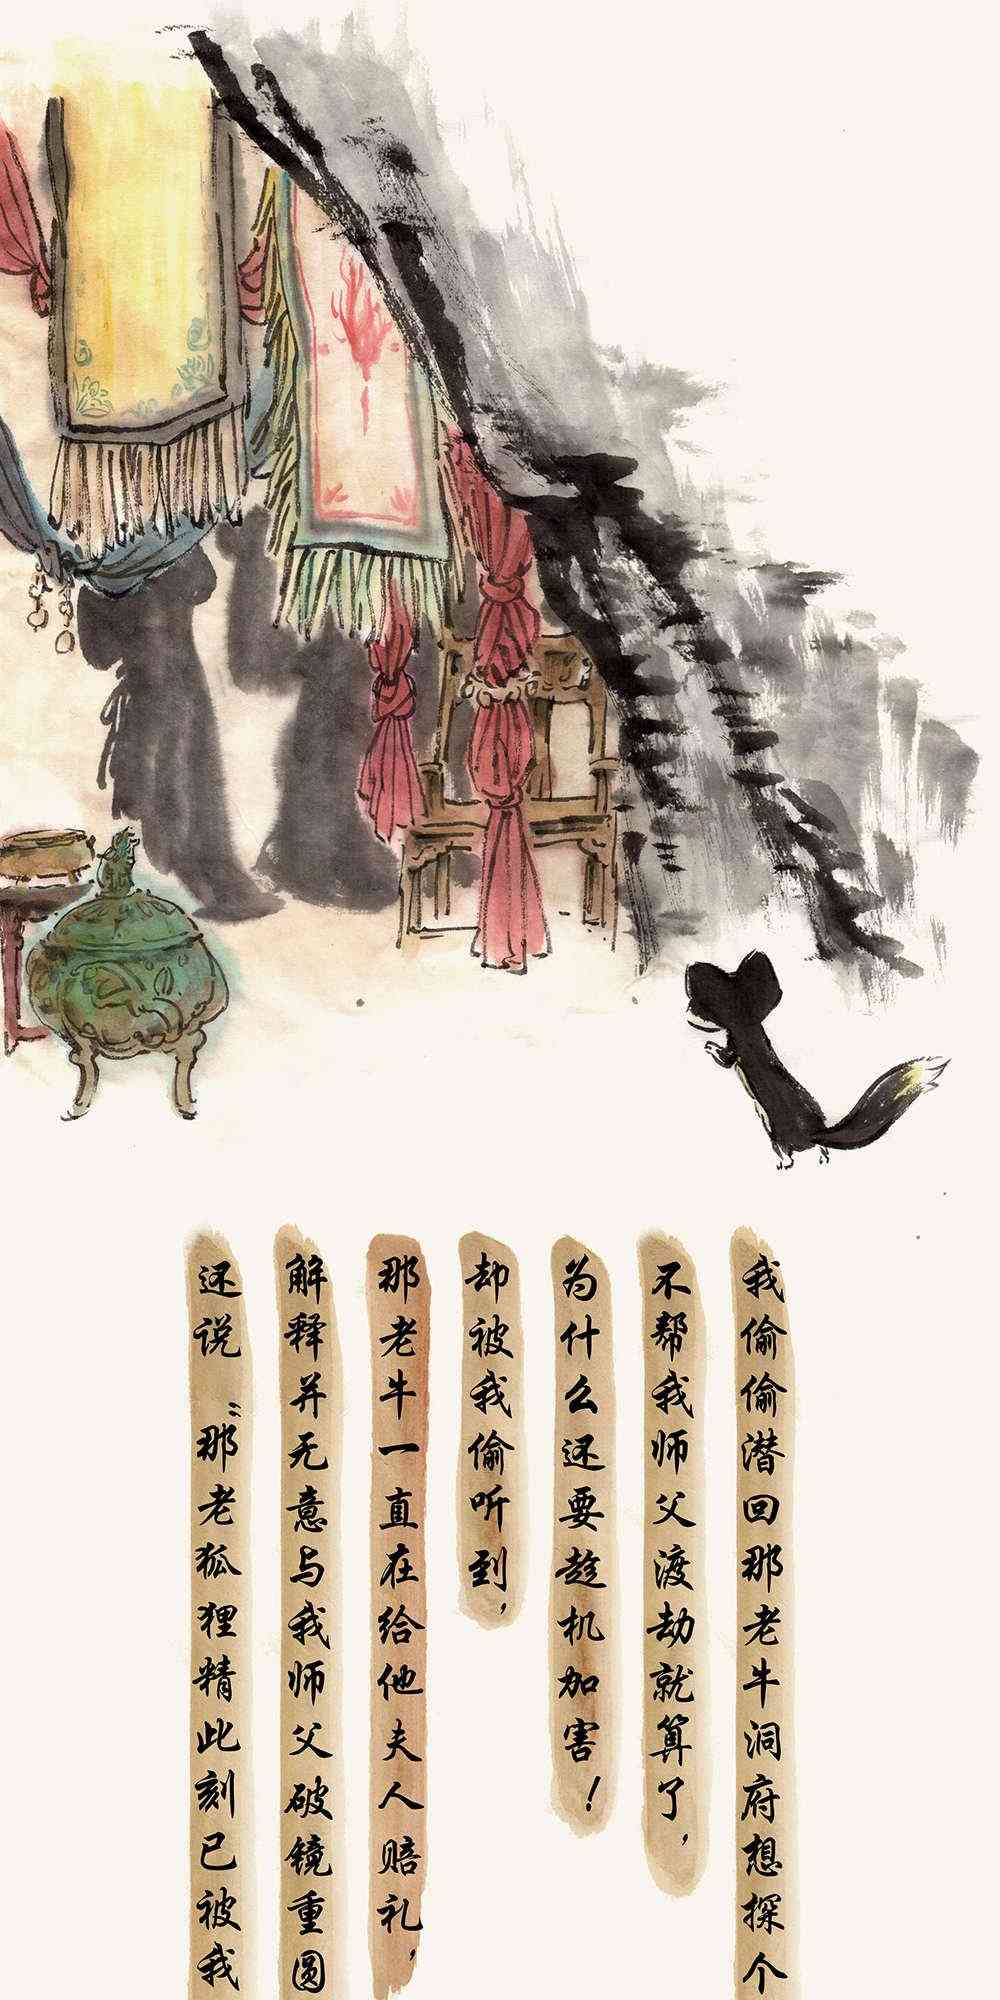 我偷偷潜回那老牛洞府想探个
不帮我师父渡劫就算了，
为什么还要趁机加害！
却被我偷听到，
那老牛一直在给他夫人赔礼，
解释并无意与我师父破镜重圆
还说“那老狐狸精此刻已被我